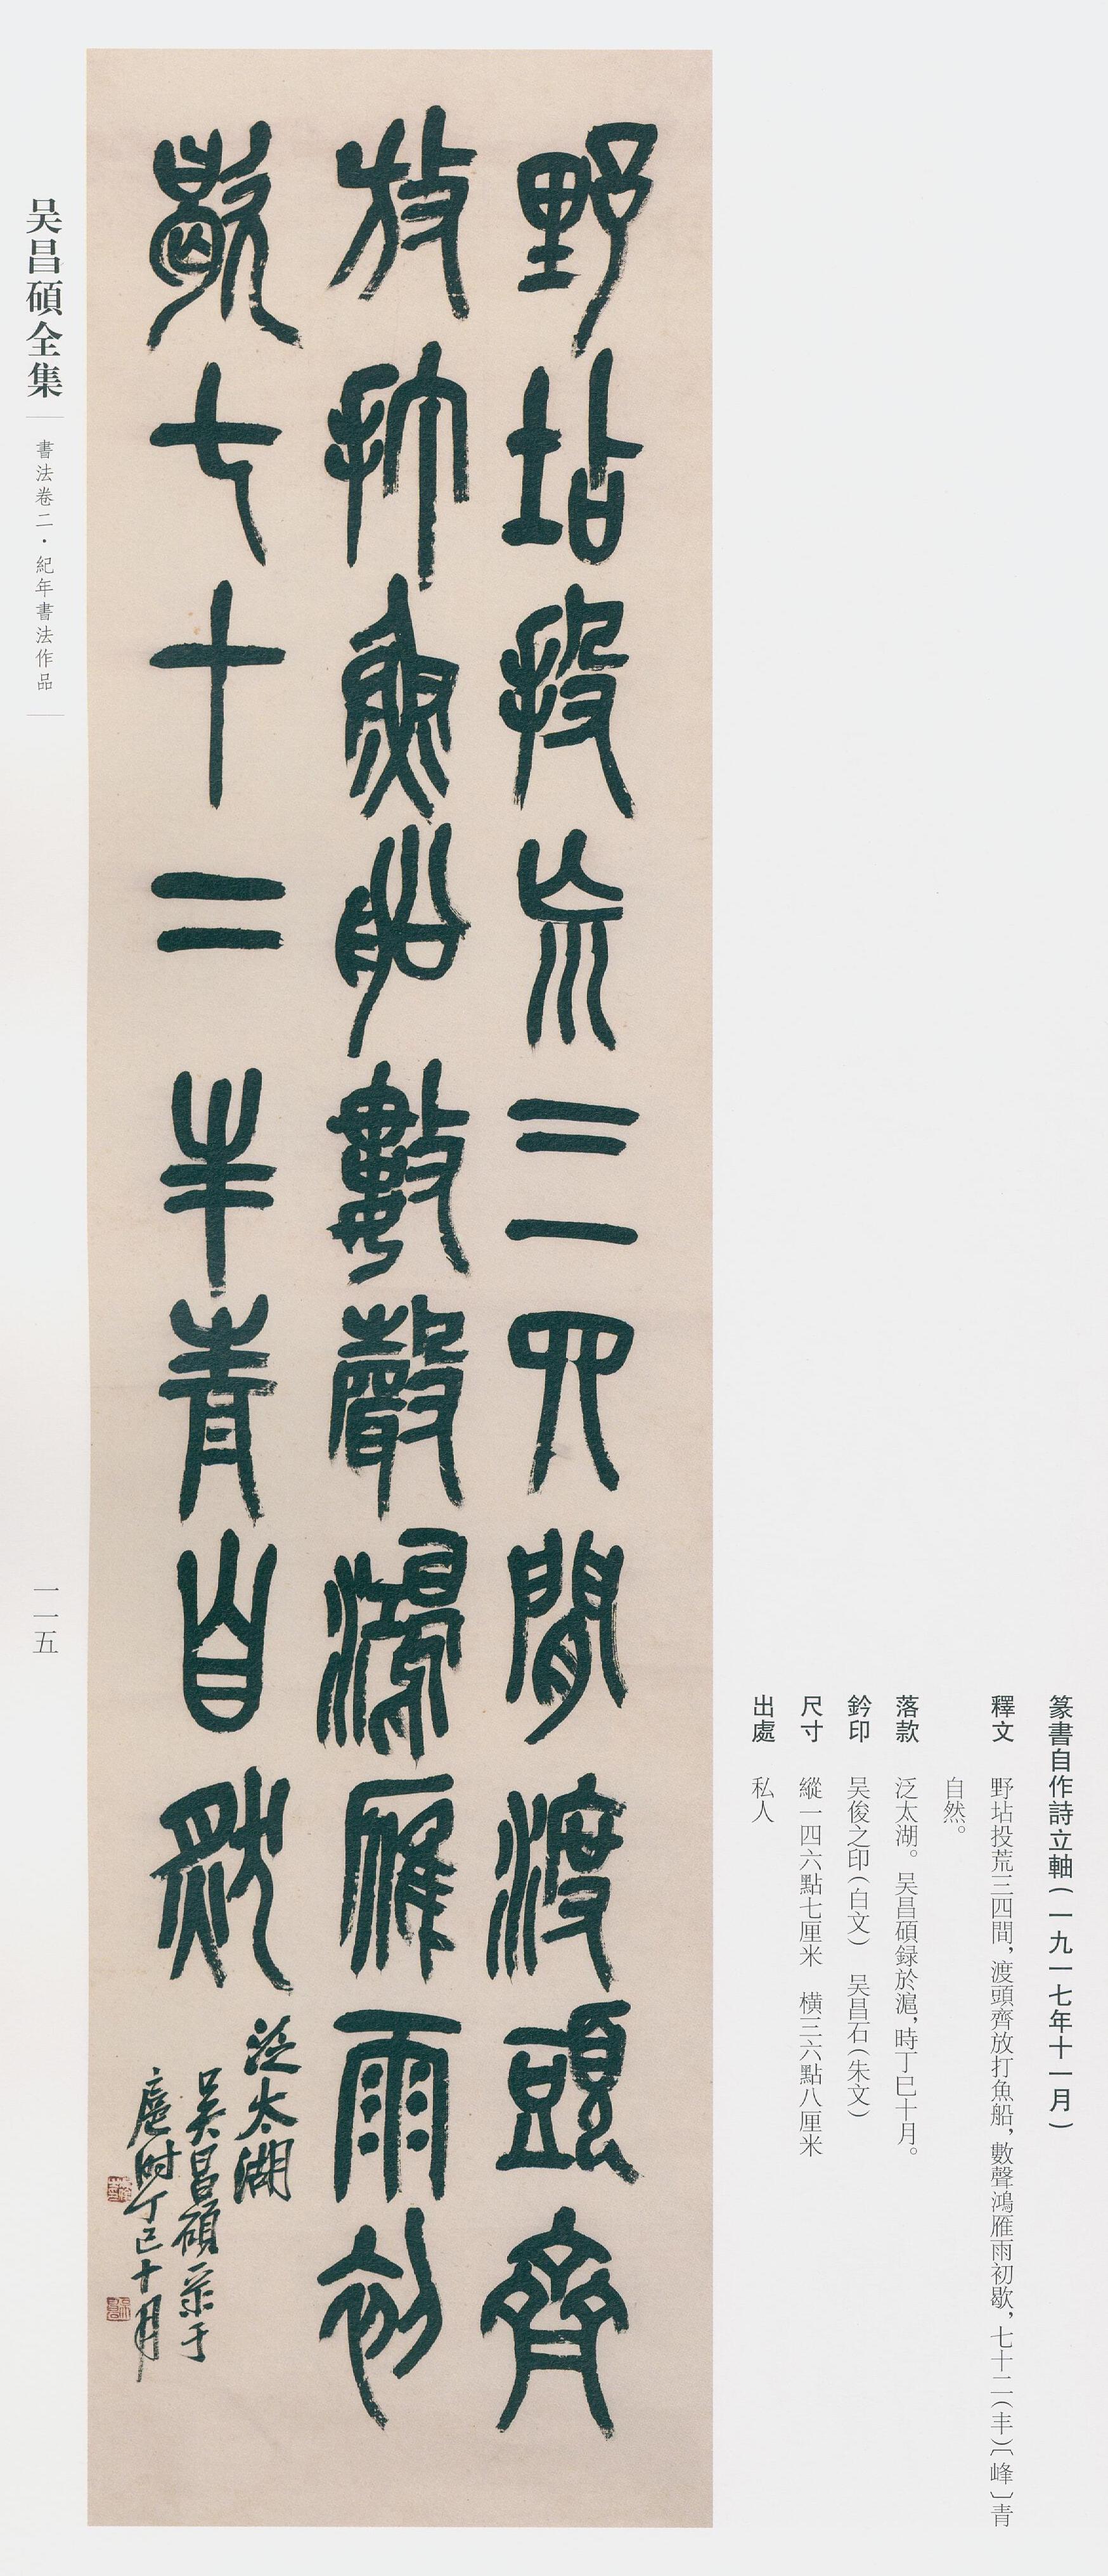 篆書自作詩立軸（一九一七年十一月）
釋文　野坫投荒三四間，渡頭齊放打魚船，數聲鴻雁雨初歇，七十二（丰）〔峰〕青
自然。
落款　泛太湖。吴昌碩録於滬，時丁巳十月。
鈐印　吴俊之印（白文）　吴昌石（朱文）
尺寸　縱一四六點七厘米　橫三六點八厘米
出處　私人
野坫投荒三四間渡頭齊
放打魚船數聲鴻雁雨初
歇七十二丰青自然
泛太湖
吴昌碩彔于
扈时丁巳十月
吴昌碩全集
書法卷二·紀年書法作品
一一五